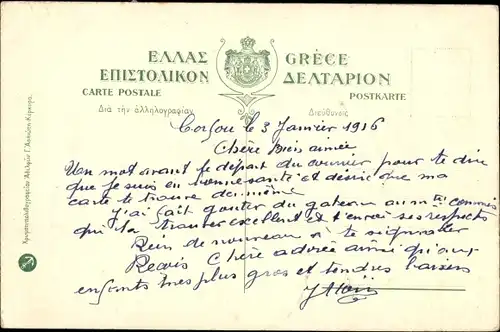 ΕΛΛΑΣ GRÈCE
ΕΠΙΣΤΟΛΙΚΟΝ ΔΕΛΤΑΡΙΟΝ
CARTE POSTALE POSTKARTE
Διὰ τὴν ἀλληλογραφίαν Διεύθυνσις
Corfou le 3 Janvier 1916
Chère bien aimée
Un mot avant le départ du courrier pour te dire
que je suis en bonne santé et désire que ma
carte te trouve de même
J'ai fait goûter du gateau au commis
qui l'a trouvé excellent et t'envoi ses respects
Rien de nouveau à te signaler
Reçois Chère adorée ainsi qu'aux
enfants mes plus gros et tendres baisers